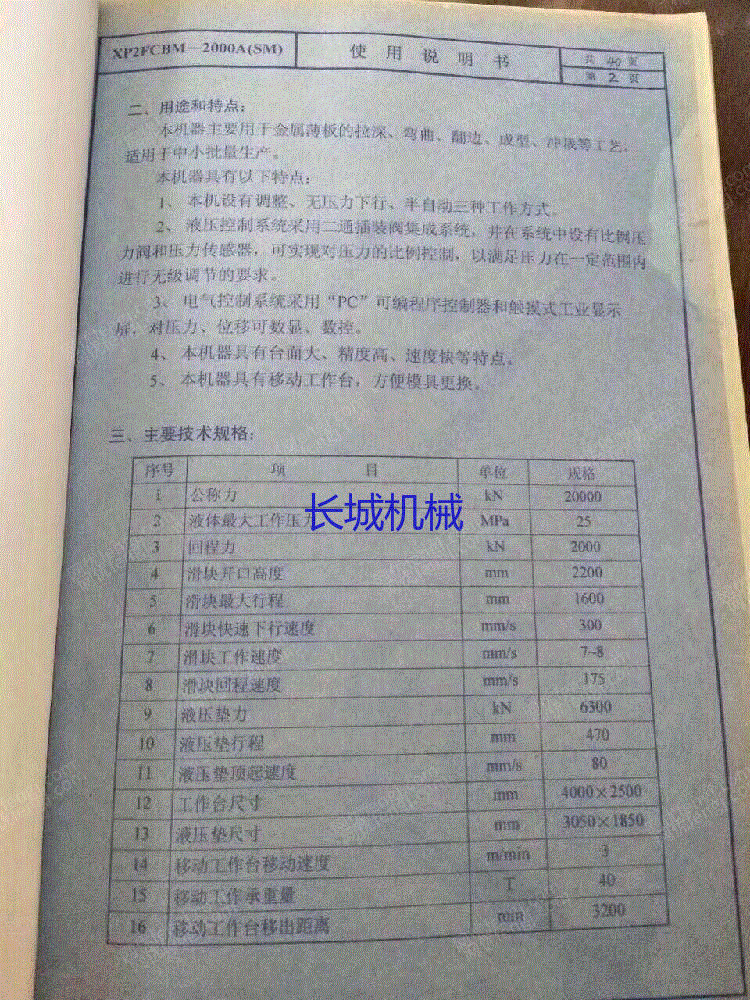 XP2FCBM—2000A(SM) 使用说明书 共 40 页
第 2 页
二、用途和特点：
本机器主要用于金属薄板的拉深、弯曲、翻边、成型、冲裁等工艺，
适用于中小批量生产。
本机器具有以下特点：
1、本机设有调整、无压力下行、半自动三种工作方式。
2、液压控制系统采用二通插装阀集成系统，并在系统中设有比例压
力阀和压力传感器，可实现对压力的比例控制，以满足压力在一定范围内
进行无级调节的要求。
3、电气控制系统采用“PC”可编程序控制器和触摸式工业显示
屏，对压力、位移可数显、数控。
4、本机器具有台面大、精度高、速度快等特点。
5、本机器具有移动工作台，方便模具更换。
三、主要技术规格：
序号 项目 单位 规格
1 公称力 kN 20000
2 液体最大工作压力 MPa 25
3 回程力 kN 2000
4 滑块开口高度 mm 2200
5 滑块最大行程 mm 1600
6 滑块快速下行速度 mm/s 300
7 滑块工作速度 mm/s 7~8
8 滑块回程速度 mm/s 175
9 液压垫力 kN 6300
10 液压垫行程 mm 470
11 液压垫顶起速度 mm/s 80
12 工作台尺寸 mm 4000×2500
13 液压垫尺寸 mm 3050×1850
14 移动工作台移动速度 m/min 3
15 移动工作承重量 T 40
16 移动工作台移出距离 mm 3200
长城机械